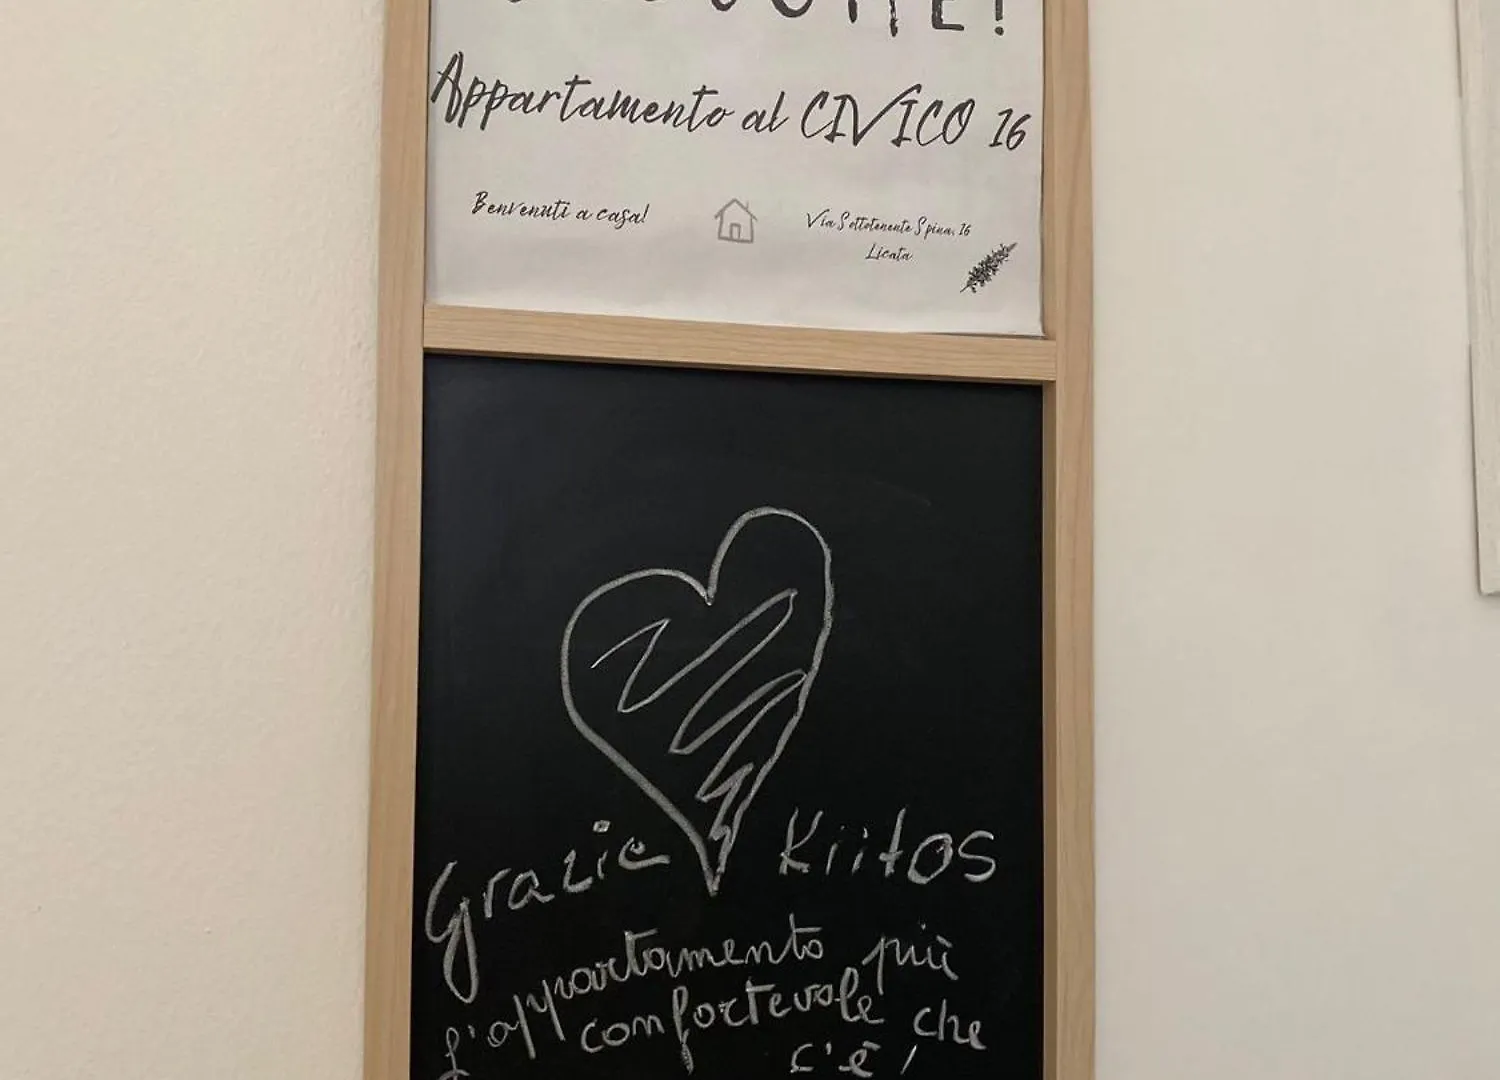 Appartamento al CIVICO 16
Benvenuti a casa!
Via Sottotenente Spina, 16
Licata
Grazie Kiitos
l'appartamento più
confortevole che
c'è!